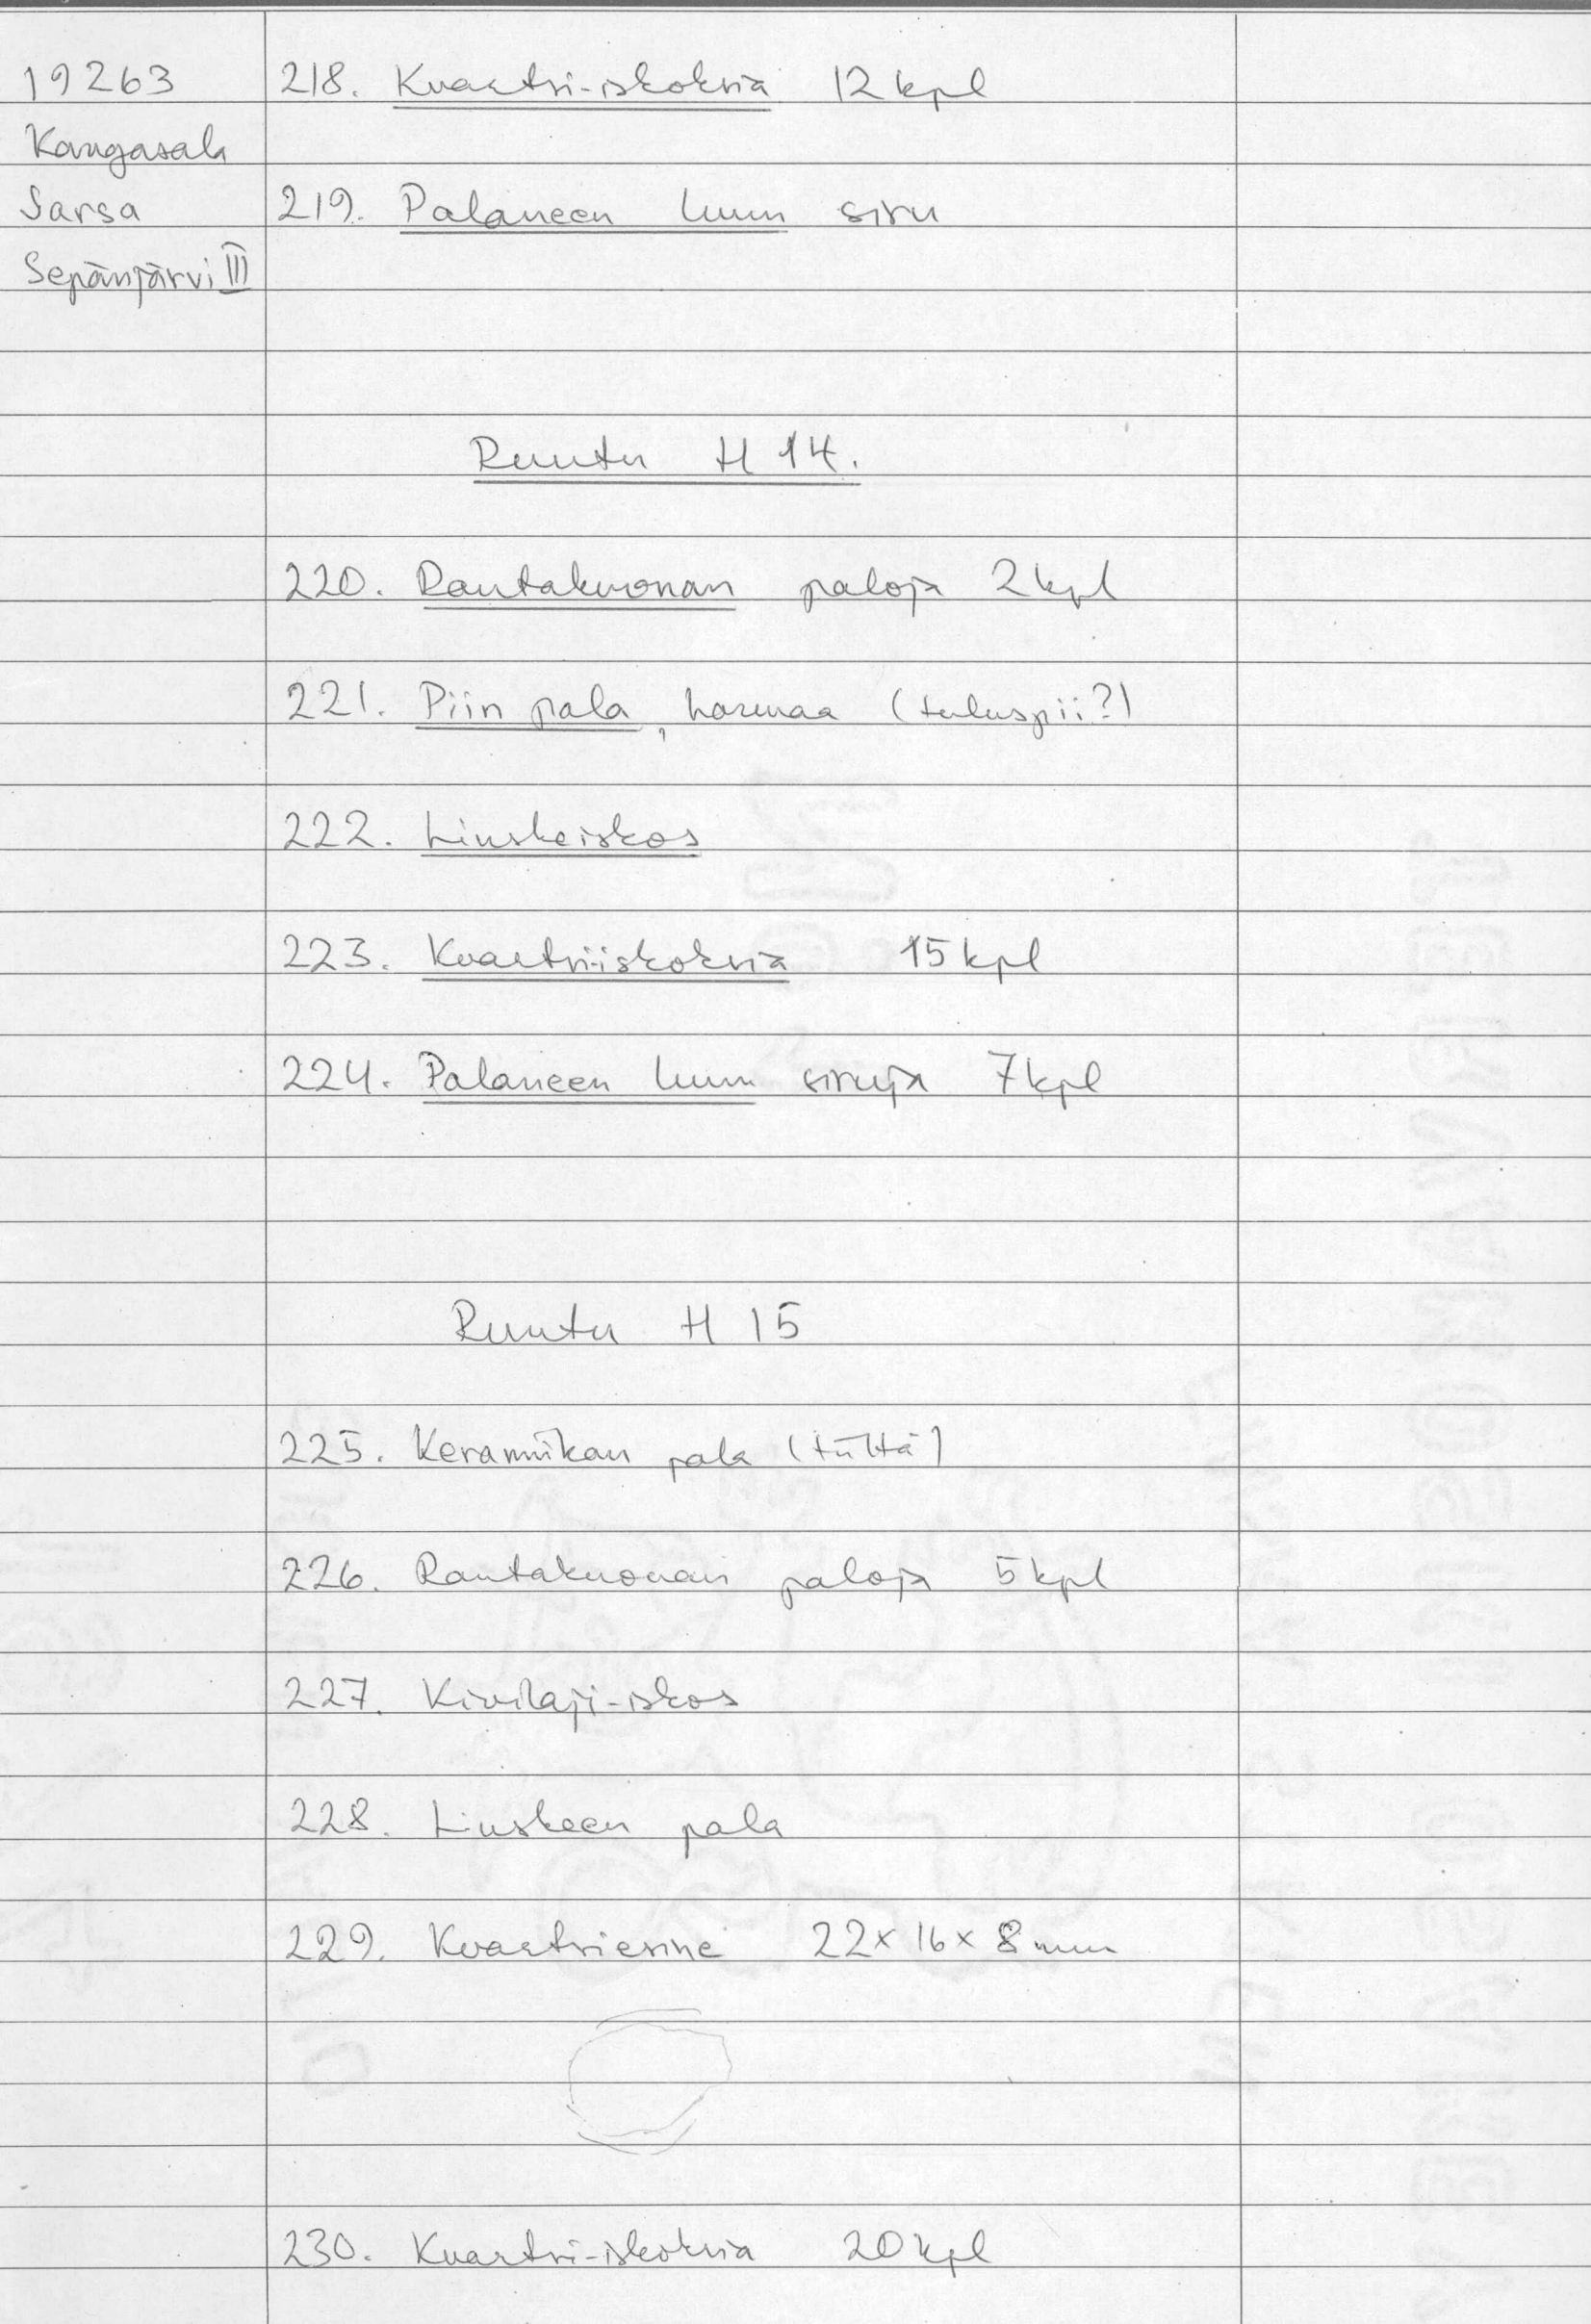 19263
218. Kvartsi-iskoksia 12 kpl
Kangasala
Sarsa
219. Palaneen luun siru
Sepänjärvi III
Ruutu H 14.
220. Rautakuonan paloja 2 kpl
221. Piin pala, harmaa (tuluspii?)
222. Liuskeiskos
223. Kvartsi-iskoksia 15 kpl
224. Palaneen luun siruja 7 kpl
Ruutu H 15
225. Keramiikan pala (tiiltä)
226. Rautakuonan paloja 5 kpl
227. Kivilaji-iskos
228. Liuskeen pala
229. Kvartsiesine 22 x 16 x 8 mm
230. Kvartsi-iskoksia 20 kpl